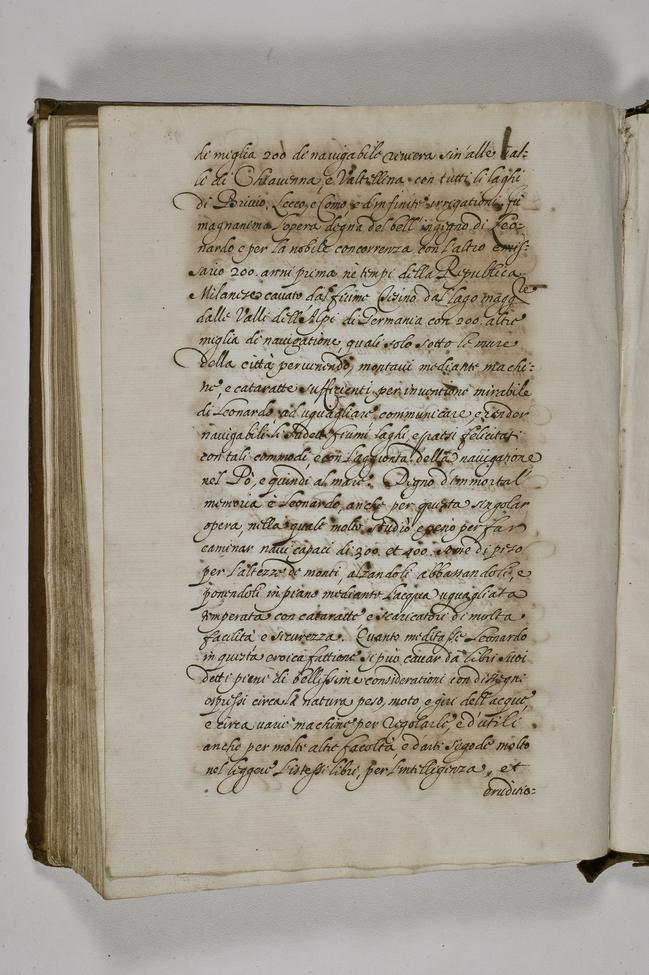 di miglia 200 di navigabile riviera sin'alle Val:
li di Chiavenna, e Valtellina con tutti li laghi
di Brivio, Lecco, e Como, e d'infinite irrigationi. fù
magnanima l'opera degna del bell'ingegno di Leo:
nardo e per la nobile concorrenza con l'altro emis:
sario 200. anni prima nè tempi della Republica
Milanese cavato dal fiume Ticino dal lago magg.re
dalle Valli dell'Alpi di Germania con 200. altre
miglia di navigatione, quali solo sotto le mure
della città pervenendo, montavi mediante machi:
ne, e cataratte sufficienti per inventione mirabile
di Leonardo ad uguagliare communicare e render
navigabili li fiumi laghi, e paesi felicitati
con tali commodi, e con l'aggionta della navigatione
nel Pò, e quindi al mare. Degno d'immortal
memoria è Leonardo, anche per questa singolar
opera, nella quale molto studiò e per far
caminar navi capaci di 300. et 400. some di peso
per l'altezze de monti, alzandoli abbassandoli, e
ponendoli in piano mediante l'acqua uguagliata
temperata con cataratte e scaricatori di molta
facilità e sicurezza. Quanto meditasse Leonardo
in questa eroica fattione si può cavar da libri suoi
detti pieni di bellissime considerationi con dissegni
espressi circa la natura peso, moto, e giri dell'acque,
e circa varie machine per regolarle, e d'utili
anche per molte altre facoltà, e d'arti si gode molto
nel leggere l'istessi libri, per l'intelligenza, et
eruditio: